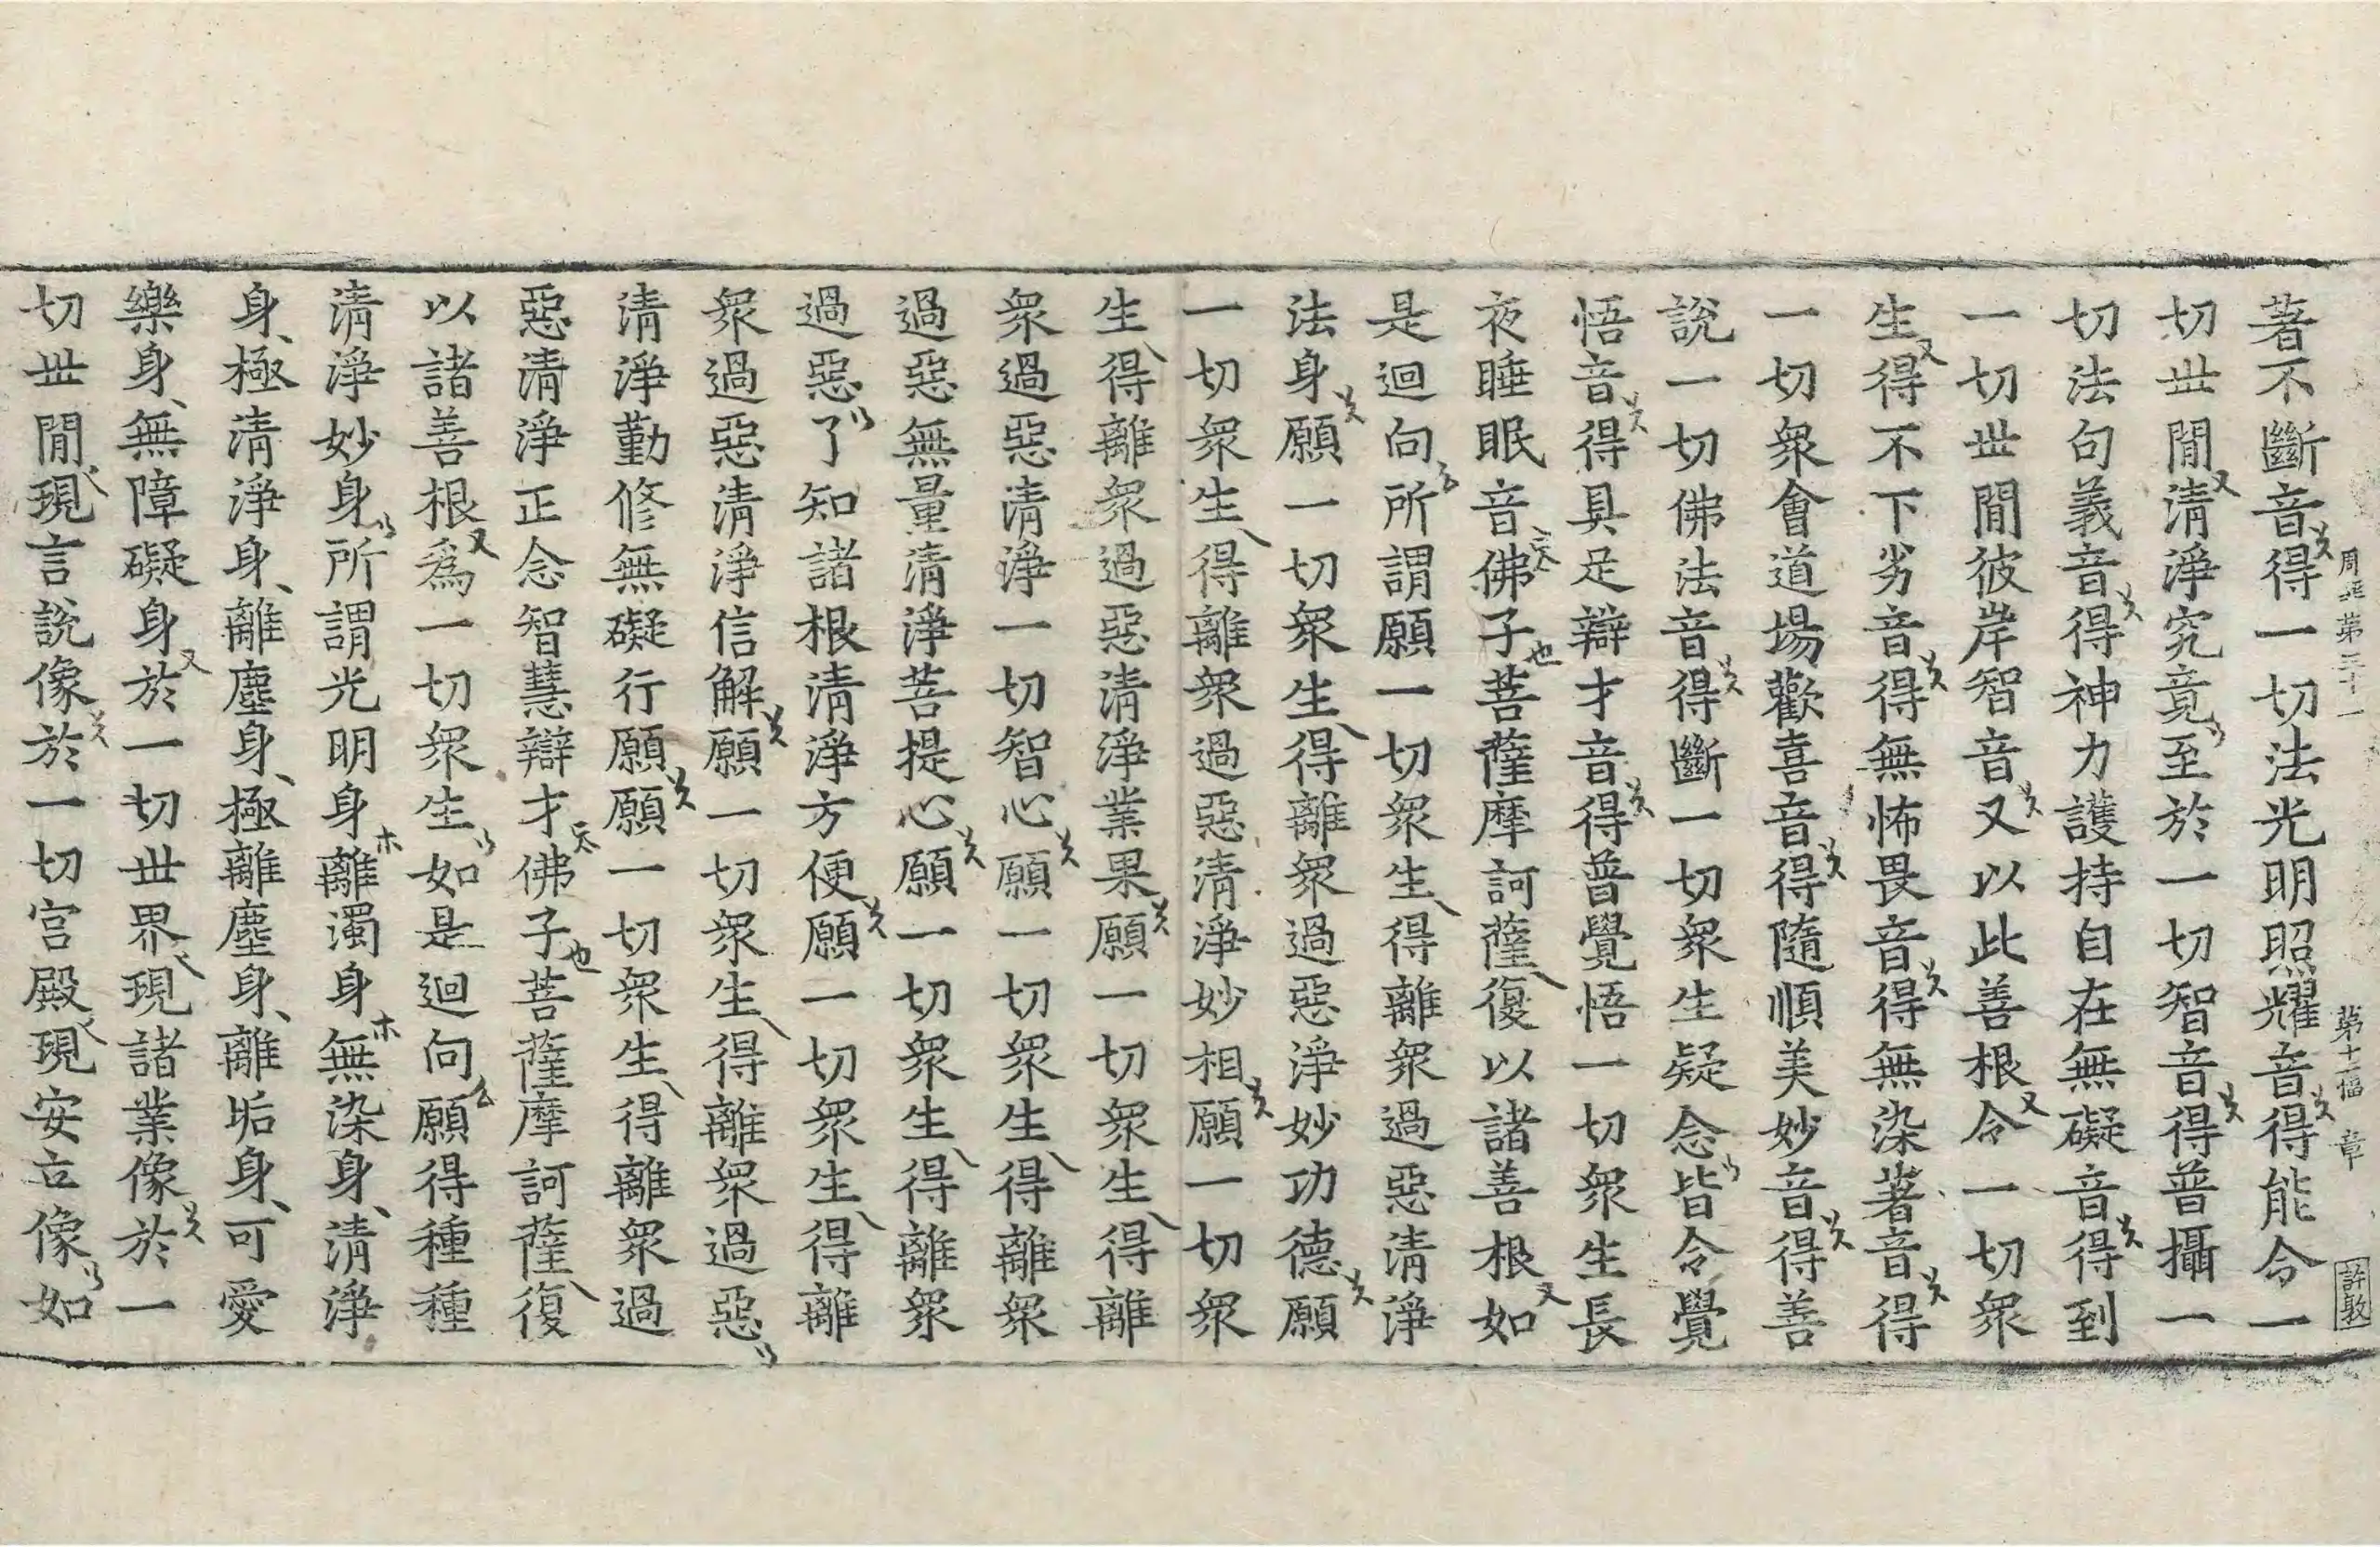 周 第三十一 第十一幅 章 許敦
著不斷音得一切法光明照耀音得能令一
切世閒清淨究竟至於一切智音得普攝一
切法句義音得神力護持自在無礙音得到
一切世閒彼岸智音又以此善根令一切衆
生得不下劣音得無怖畏音得無染著音得
一切衆會道場歡喜音得隨順美妙音得善
說一切佛法音得斷一切衆生疑念皆令覺
悟音得具足辯才音得普覺悟一切衆生長
夜睡眠音佛子菩薩摩訶薩復以諸善根如
是迴向所謂願一切衆生得離衆過惡清淨
法身願一切衆生得離衆過惡淨妙功德願
一切衆生得離衆過惡清淨妙相願一切衆
生得離衆過惡清淨業果願一切衆生得離
衆過惡清淨一切智心願一切衆生得離衆
過惡無量清淨菩提心願一切衆生得離衆
過惡了知諸根清淨方便願一切衆生得離
衆過惡清淨信解願一切衆生得離衆過惡
清淨勤修無礙行願願一切衆生得離衆過
惡清淨正念智慧辯才佛子菩薩摩訶薩復
以諸善根爲一切衆生如是迴向願得種種
清淨妙身所謂光明身離濁身無染身清淨
身極清淨身離塵身極離塵身離垢身可愛
樂身無障礙身於一切世界現諸業像於一
切世閒現言說像於一切宮殿現安立像如